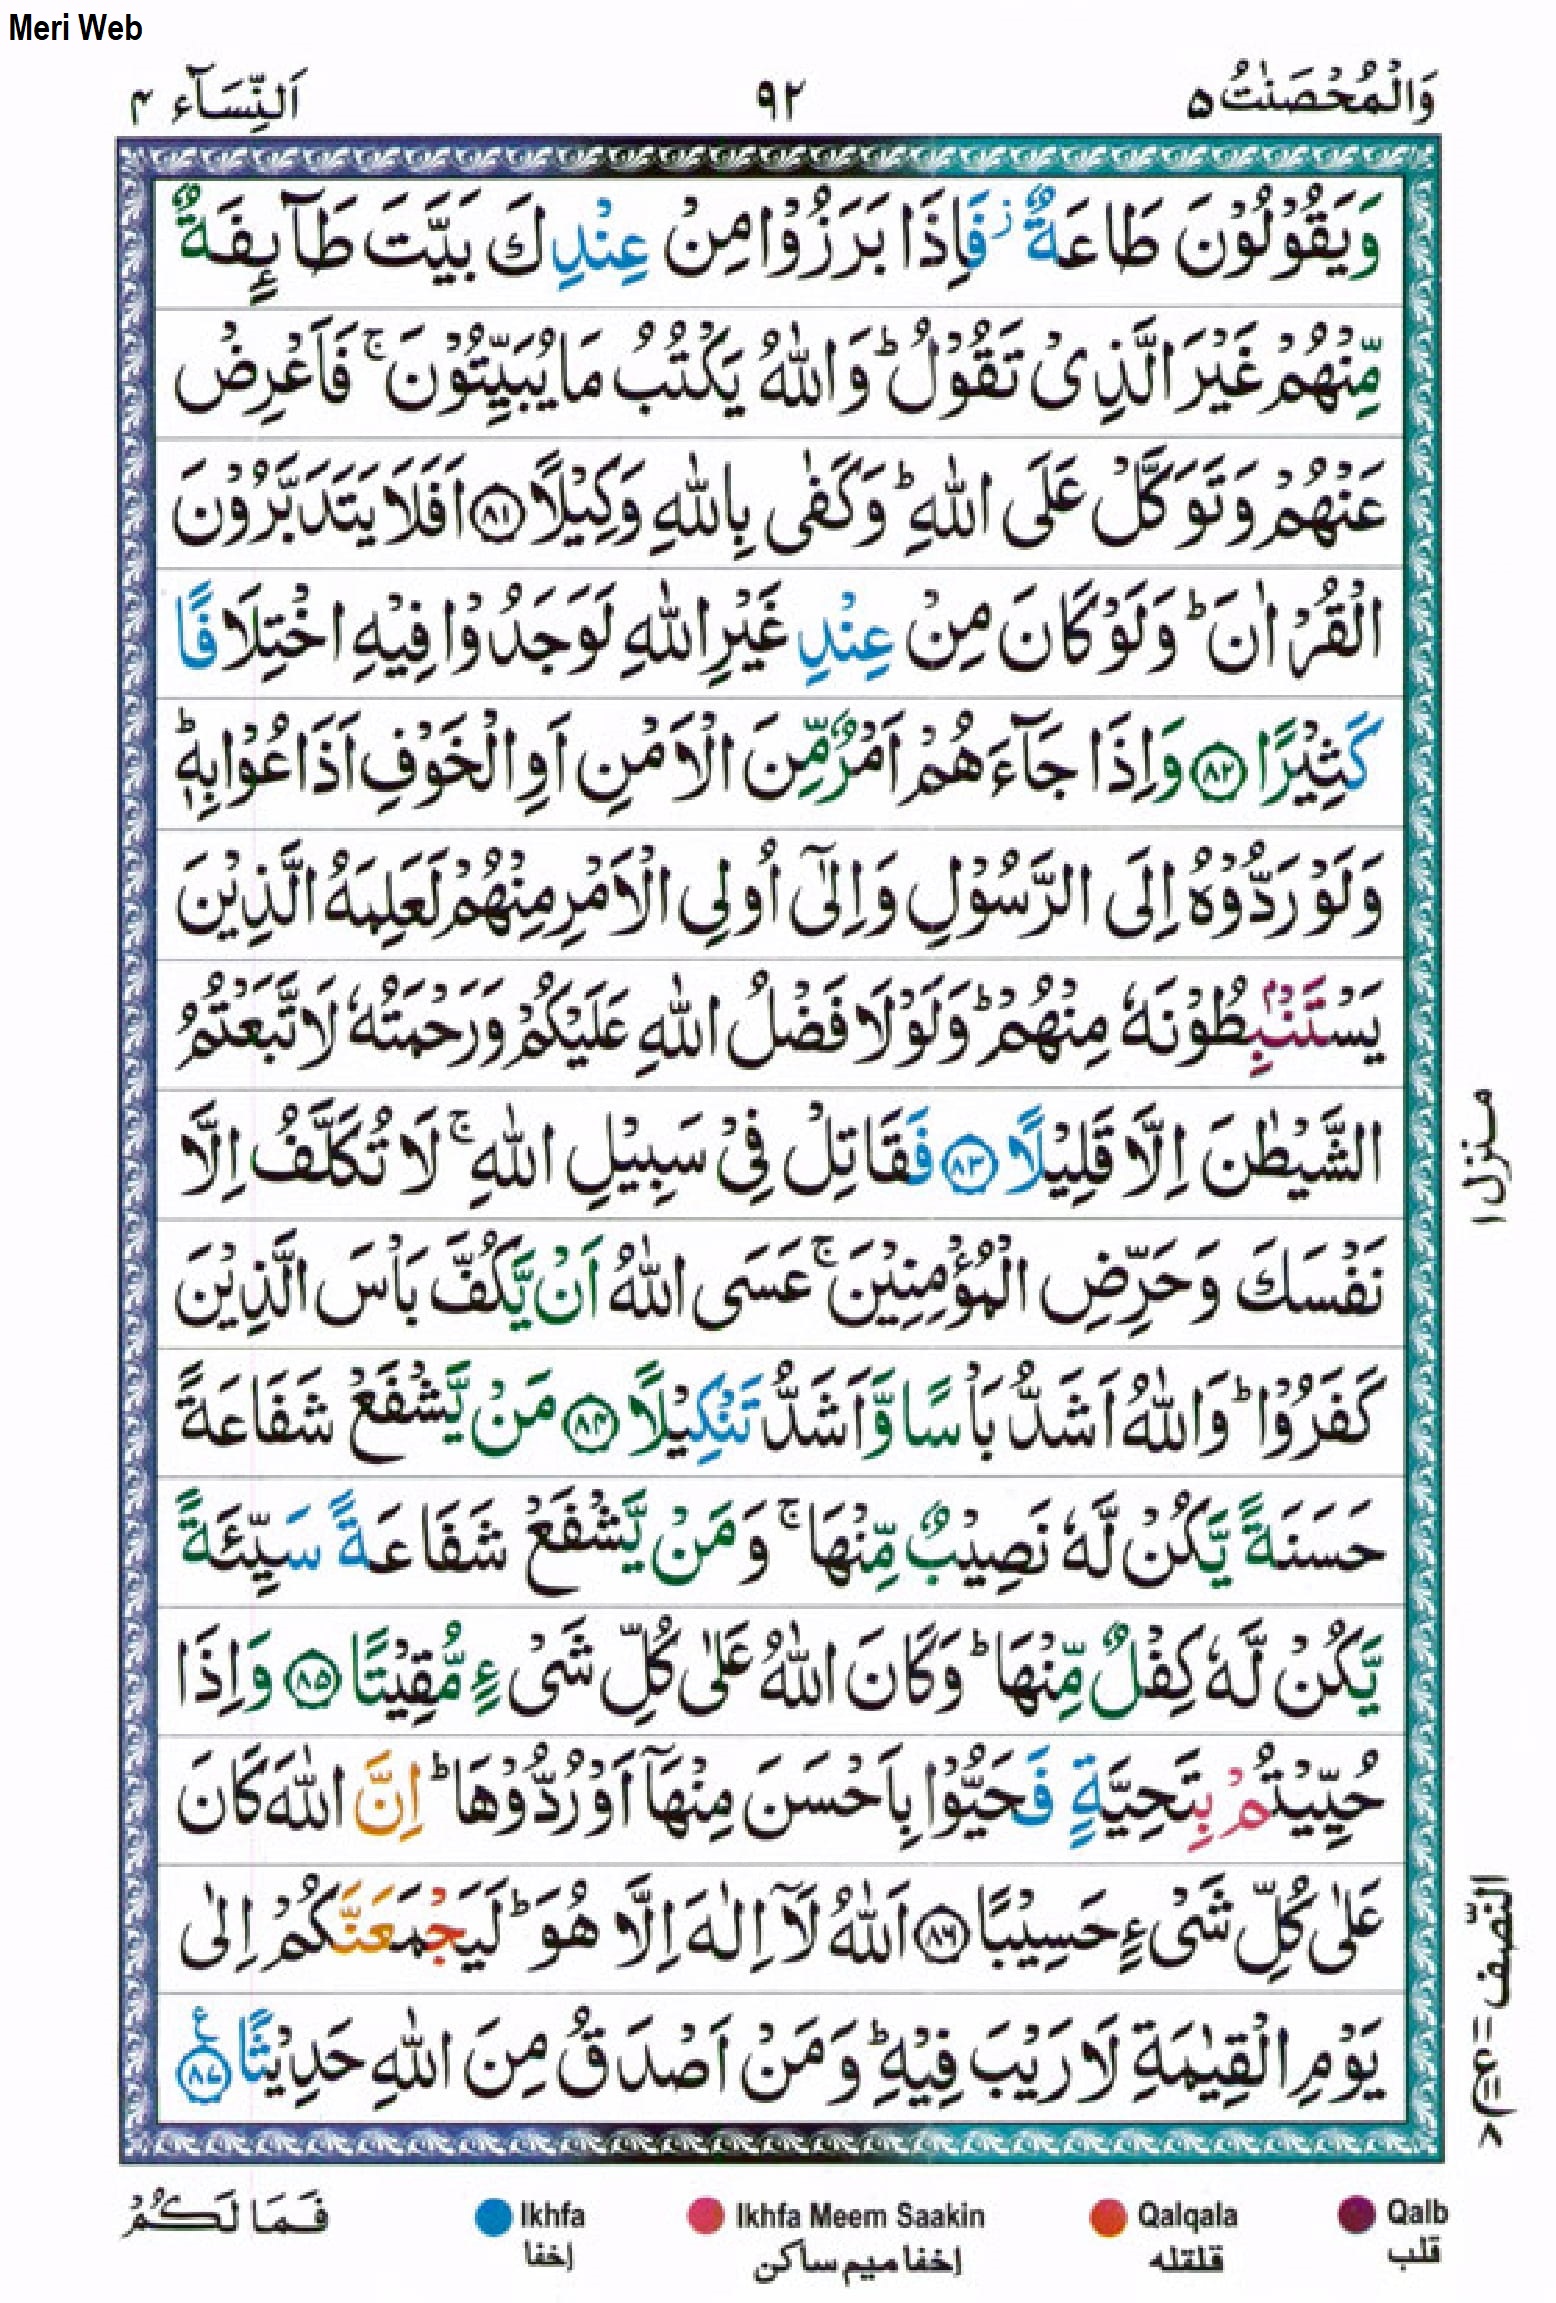 Meri Web
وَالْمُحْصَنٰتُ ۵
۹۲
اَلنِّسَآء ۴
وَيَقُوْلُوْنَ طَاعَةٌ ز فَاِذَا بَرَزُوْا مِنْ عِنْدِكَ بَيَّتَ طَآئِفَةٌ
مِّنْهُمْ غَيْرَ الَّذِىْ تَقُوْلُ ؕ وَاللّٰهُ يَكْتُبُ مَا يُبَيِّتُوْنَ ۚ فَاَعْرِضْ
عَنْهُمْ وَتَوَكَّلْ عَلَى اللّٰهِ ؕ وَكَفٰى بِاللّٰهِ وَكِيْلًا ﴿۸۱﴾ اَفَلَا يَتَدَبَّرُوْنَ
الْقُرْاٰنَ ؕ وَلَوْ كَانَ مِنْ عِنْدِ غَيْرِ اللّٰهِ لَوَجَدُوْا فِيْهِ اخْتِلَافًا
كَثِيْرًا ﴿۸۲﴾ وَاِذَا جَآءَهُمْ اَمْرٌ مِّنَ الْاَمْنِ اَوِ الْخَوْفِ اَذَاعُوْا بِهٖ ؕ
وَلَوْ رَدُّوْهُ اِلَى الرَّسُوْلِ وَاِلٰٓى اُولِى الْاَمْرِ مِنْهُمْ لَعَلِمَهُ الَّذِيْنَ
يَسْتَنْۢبِطُوْنَهٗ مِنْهُمْ ؕ وَلَوْلَا فَضْلُ اللّٰهِ عَلَيْكُمْ وَرَحْمَتُهٗ لَاتَّبَعْتُمُ
الشَّيْطٰنَ اِلَّا قَلِيْلًا ﴿۸۳﴾ فَقَاتِلْ فِىْ سَبِيْلِ اللّٰهِ ۚ لَا تُكَلَّفُ اِلَّا
نَفْسَكَ وَحَرِّضِ الْمُؤْمِنِيْنَ ۚ عَسَى اللّٰهُ اَنْ يَّكُفَّ بَاْسَ الَّذِيْنَ
كَفَرُوْا ؕ وَاللّٰهُ اَشَدُّ بَاْسًا وَّاَشَدُّ تَنْكِيْلًا ﴿۸۴﴾ مَنْ يَّشْفَعْ شَفَاعَةً
حَسَنَةً يَّكُنْ لَّهٗ نَصِيْبٌ مِّنْهَا ۚ وَمَنْ يَّشْفَعْ شَفَاعَةً سَيِّئَةً
يَّكُنْ لَّهٗ كِفْلٌ مِّنْهَا ؕ وَكَانَ اللّٰهُ عَلٰى كُلِّ شَىْءٍ مُّقِيْتًا ﴿۸۵﴾ وَاِذَا
حُيِّيْتُمْ بِتَحِيَّةٍ فَحَيُّوْا بِاَحْسَنَ مِنْهَآ اَوْ رُدُّوْهَا ؕ اِنَّ اللّٰهَ كَانَ
عَلٰى كُلِّ شَىْءٍ حَسِيْبًا ﴿۸۶﴾ اَللّٰهُ لَآ اِلٰهَ اِلَّا هُوَ ؕ لَيَجْمَعَنَّكُمْ اِلٰى
يَوْمِ الْقِيٰمَةِ لَا رَيْبَ فِيْهِ ؕ وَمَنْ اَصْدَقُ مِنَ اللّٰهِ حَدِيْثًا ﴿۸۷﴾ ع
منزل ۱
النّصف
ع ۸
فَمَا لَكُمْ
Ikhfa
اخفا
Ikhfa Meem Saakin
اخفا میم ساکن
Qalqala
قلقله
Qalb
قلب